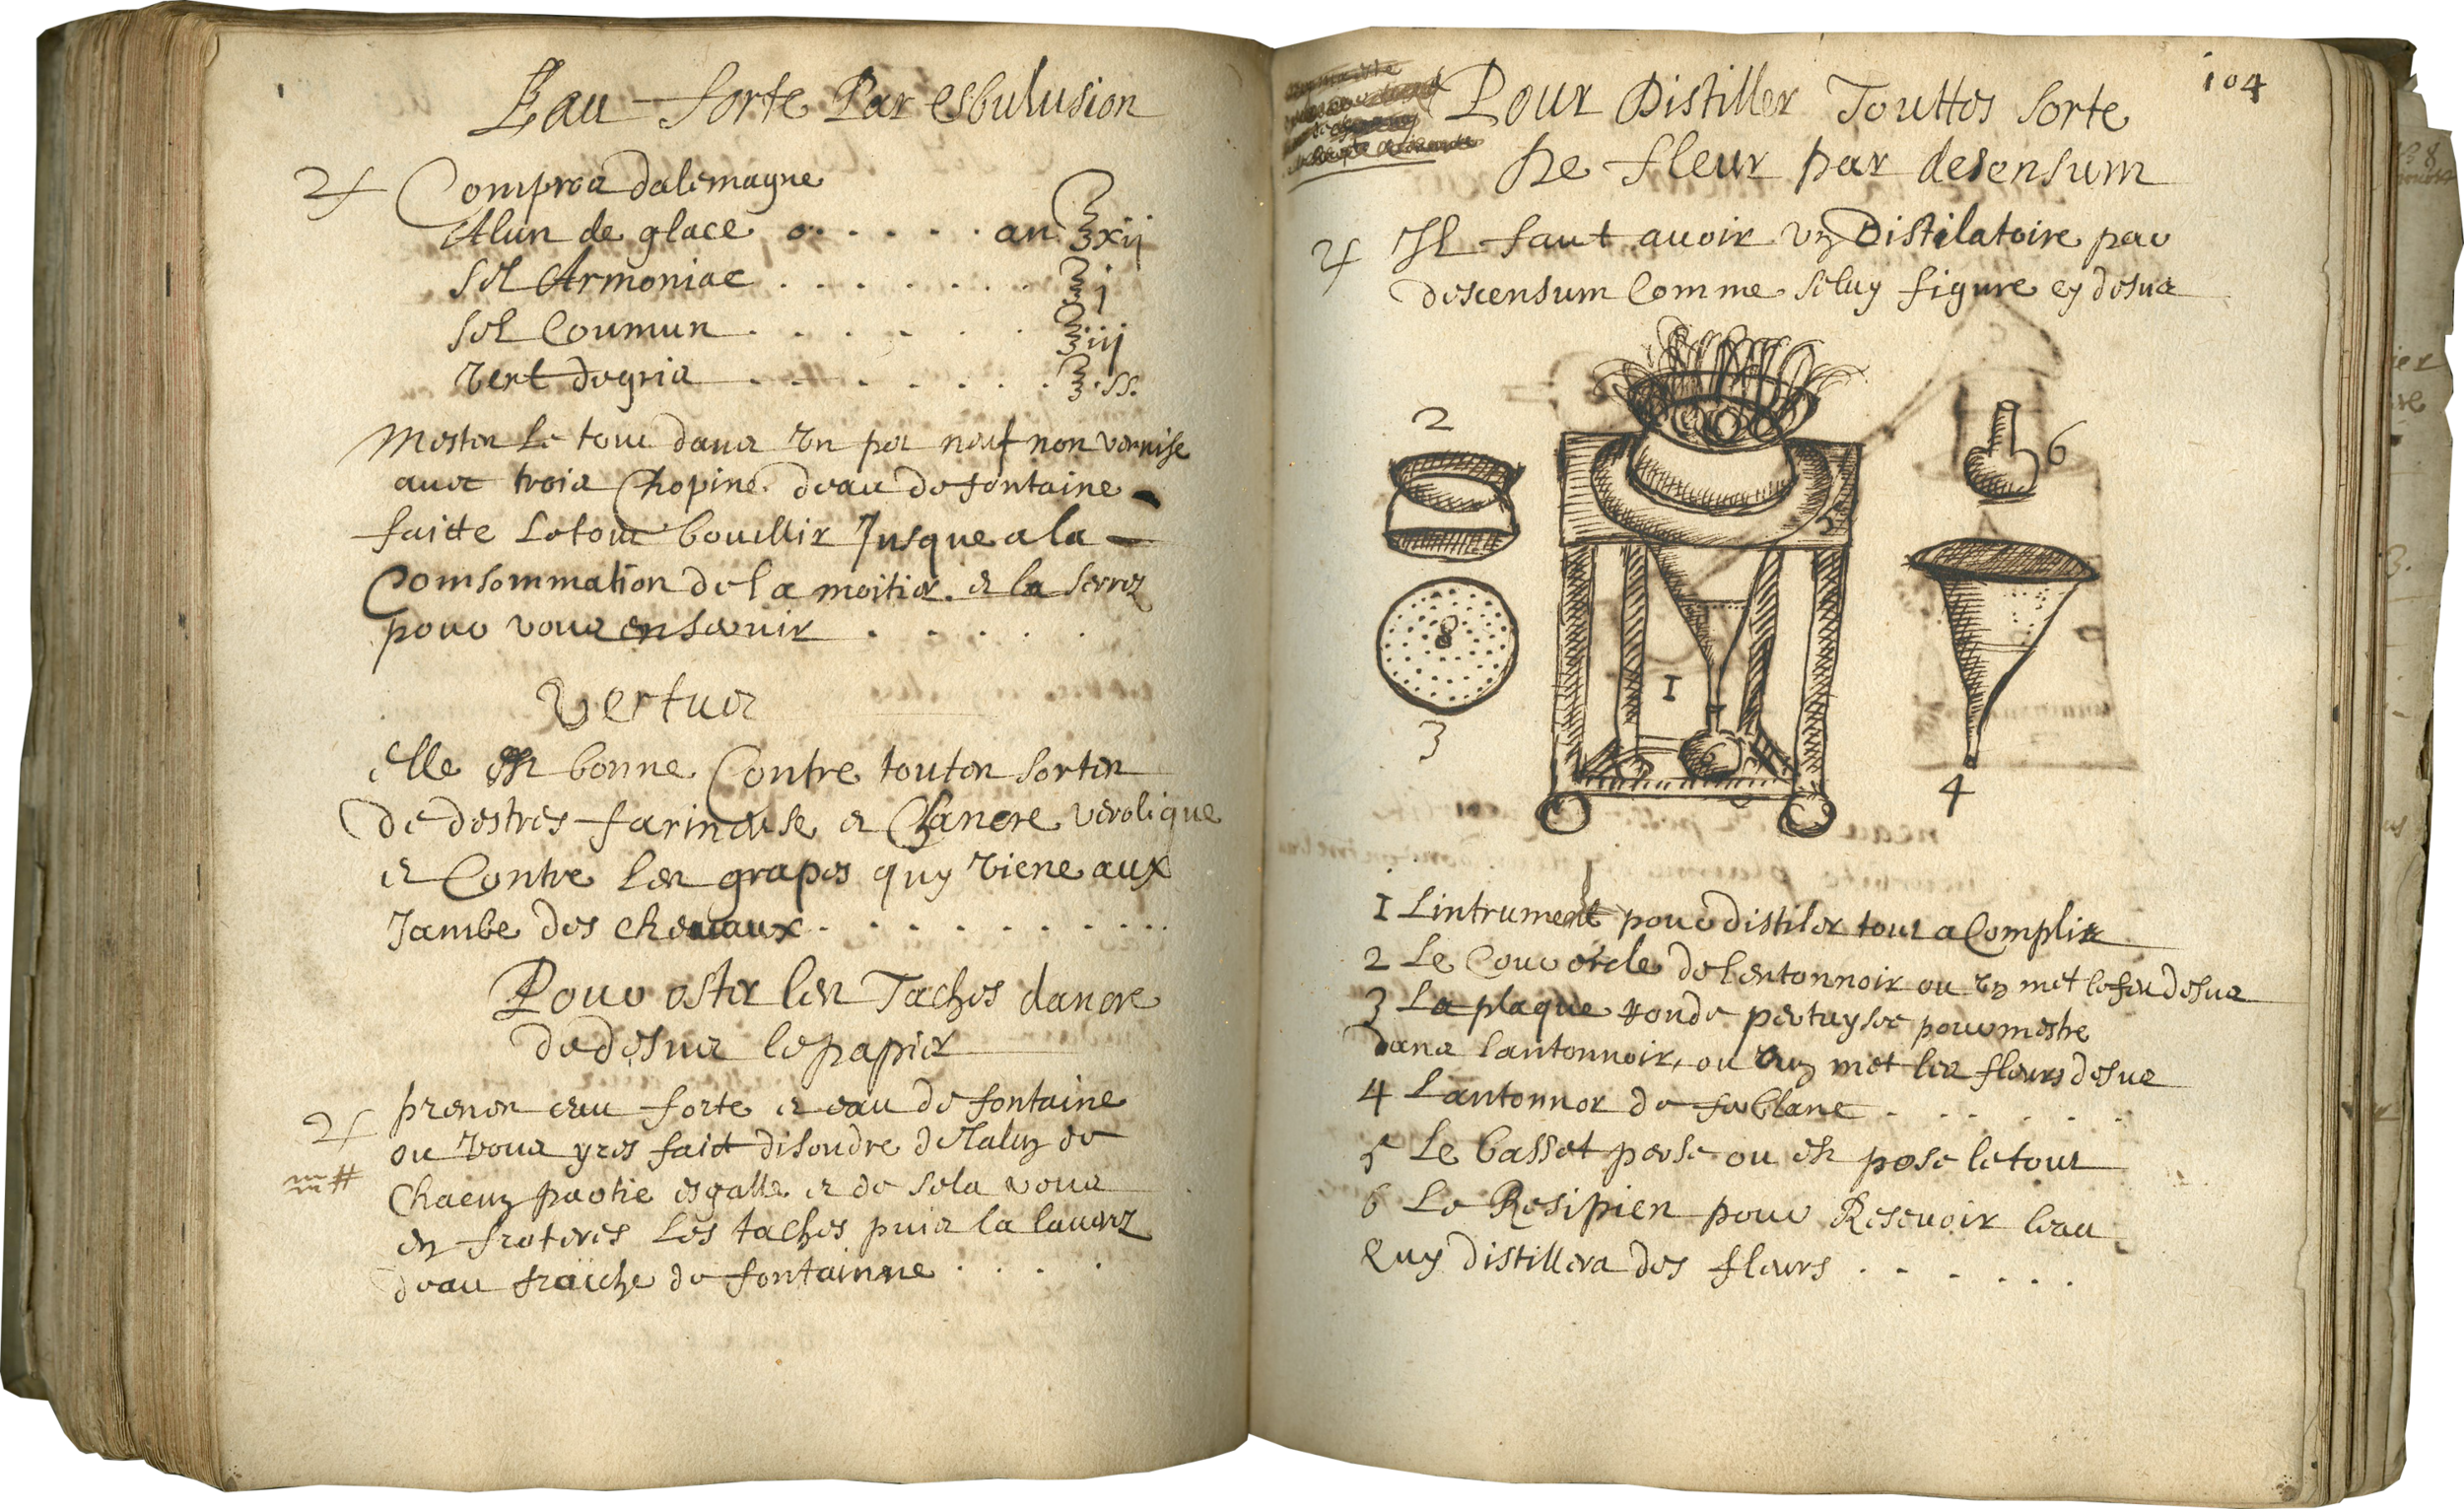 Eau forte Par esbulusion
♃ Comproz dalemagne
Alun de glace . . . . . . an ℥xij
sel Armoniac . . . . . . . ℥j
sel Coumun . . . . . . ℥iij
vert degris . . . . . . . ℥ss.
Mestez Le tout dans un pot neuf non vernise
avec trois Chopine deau de fontaine
faitte Le tout bouillir Jusque a la
Comsommation de la moitiez et la serrez
pour vous en servir . . . . .
Vertus
elle est bonne Contre toutes sortes
De destres farineuse et Chancre verolique
et Contre les grapes quy viene aux
Jambe des chevaux . . . . . . . . .
Pour oster les Taches dancre
de desus le papier
♃ prenez eau forte et eau de fontaine
ou vous yres fait disoudre de lalun de
Chacun partie esgalle et de sela vous
en froteres Les taches puis la lavarz
deau fraiche de fontainne . . . .
104
Pour Distiller Touttes sorte
De fleur par desensum
♃ Il faut avoir un Distilatoire par
descensum Comme seluy figure cy desus
2
6
5
8
1
3
6
4
1 Lintrument pour distiler tout a Complir
2 Le Couvercle de lentonnoir ou on met le feu desus
3 La plaque ronde pertuysee pour mestre
Dans lantonnoir, ou on met les fleurs desus
4 Lantonnor de ferblanc . . . . . .
5 Le basset perse ou est pose le tout
6 Le Resipien pour Resevoir leau
Quy distillera des fleurs . . . . . .